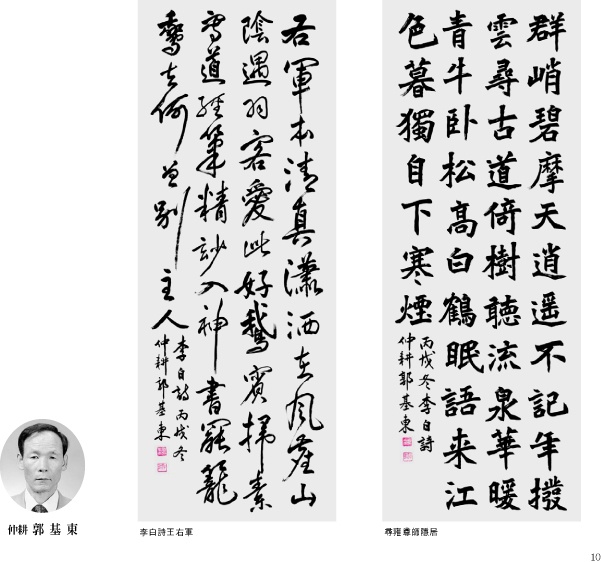 群峭碧摩天逍遥不記年撥
雲尋古道倚樹聽流泉華暖
青牛卧松高白鶴眠語来江
色暮獨自下寒煙
丙戌冬李白詩
仲耕郭基東
右軍本清真瀟洒在風塵山
陰遇羽客愛此好鵞賓掃素
寫道経筆精妙入神書罷籠
鵞去何曽別主人
李白詩丙戌冬
仲耕郭基東
仲耕 郭基東
李白詩王右軍
尋雍尊師隱居
10